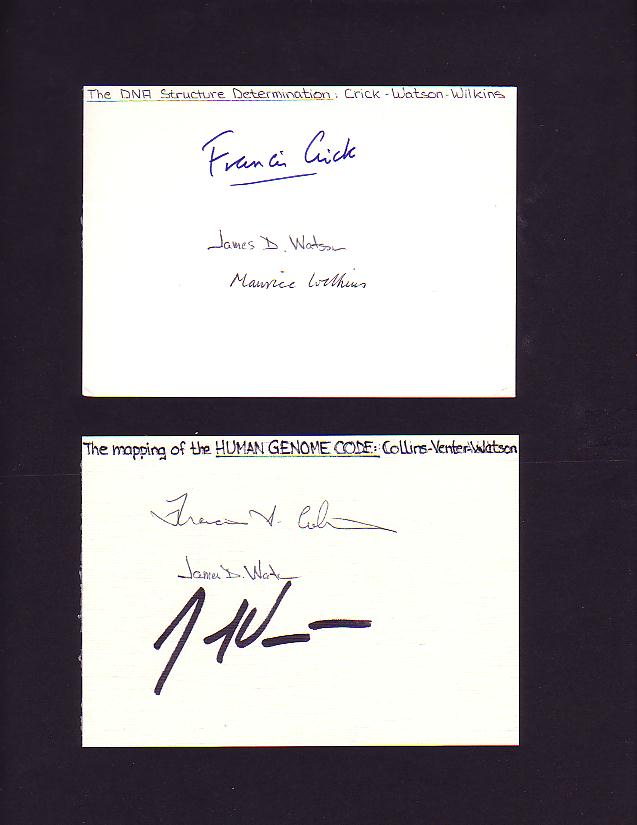 The DNA Structure Determination: Crick-Watson-Wilkins
Francis Crick
James D. Watson
Maurice Wilkins
The mapping of the HUMAN GENOME CODE: Collins-Venter-Watson
Francis S. Collins
James D. Watson